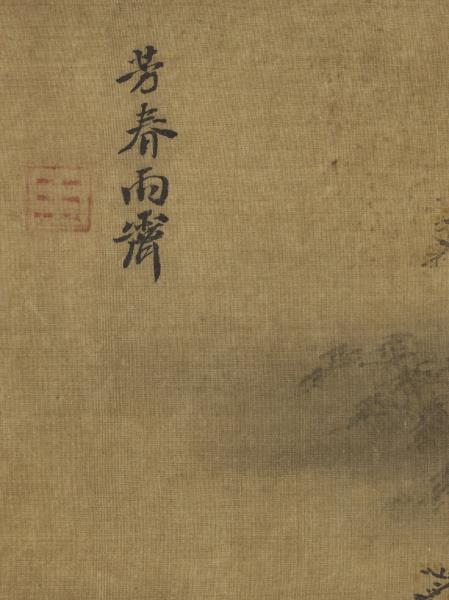 芳春雨霽